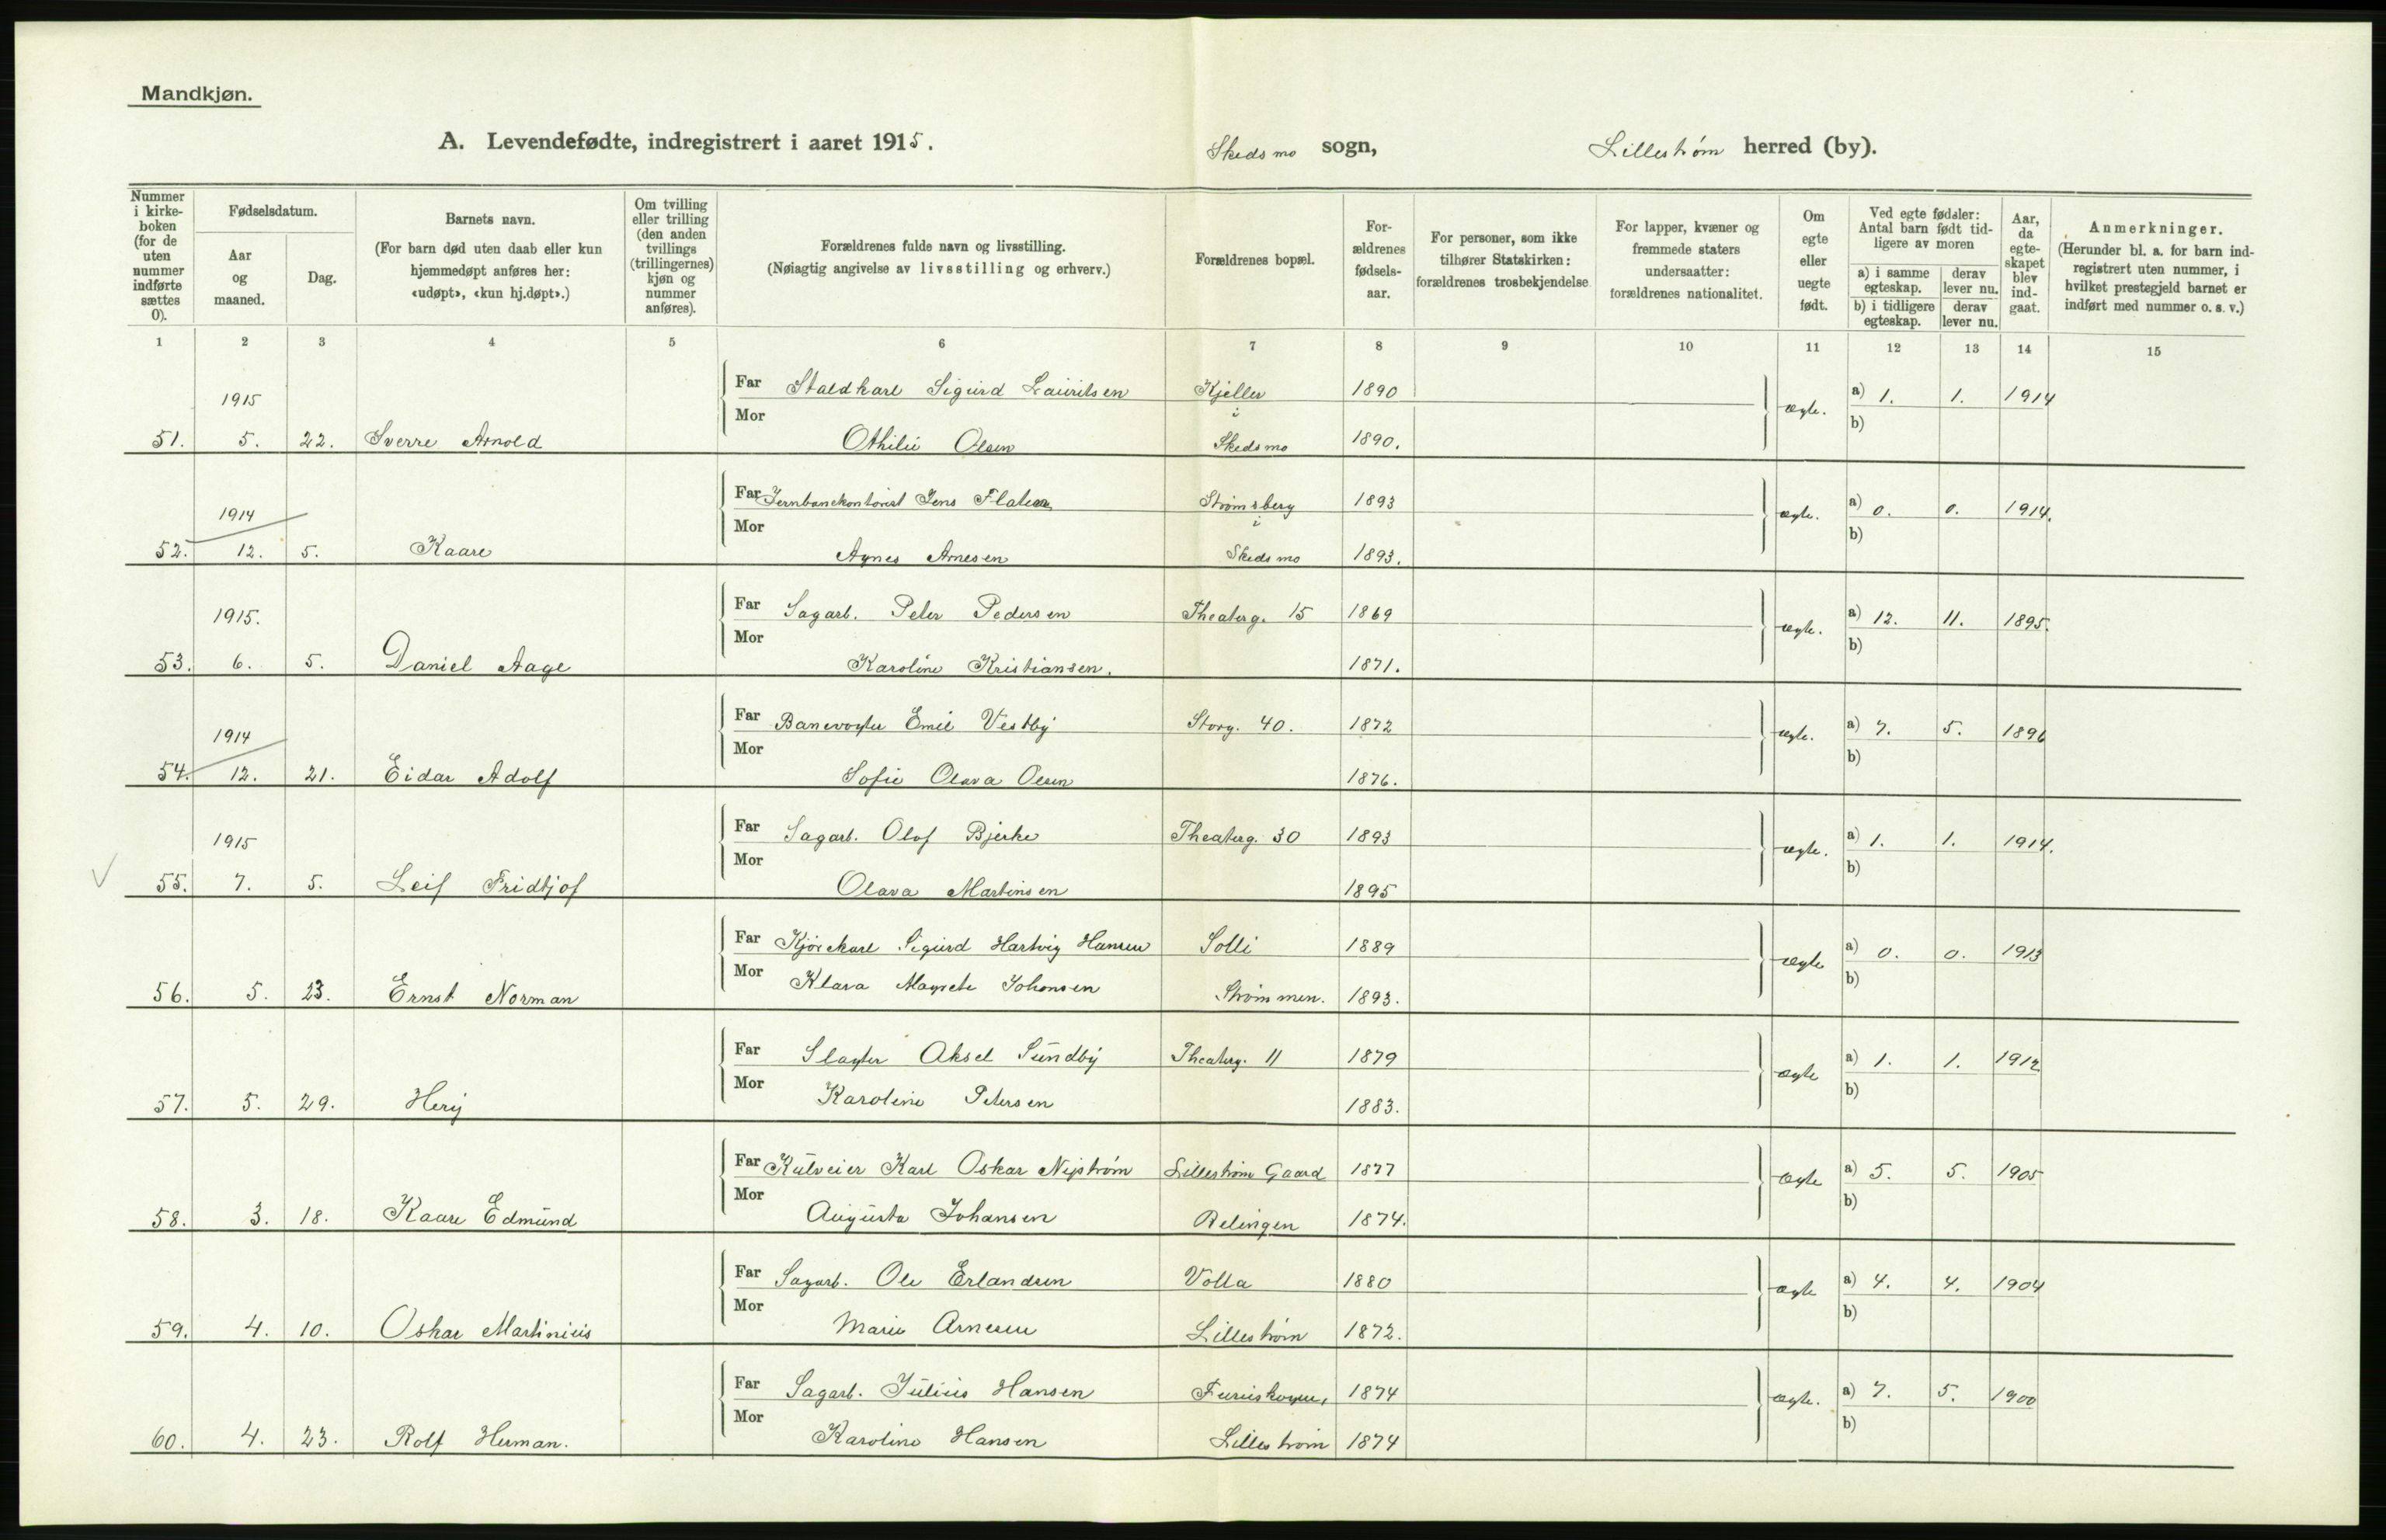 Mandkjøn.
A. Levendefødte, indregistrert i aaret 1915. Skedsmo sogn, Lillestrøm herred (by).
Nummer i kirke-boken (for de uten nummer indførte sættes 0).
Fødselsdatum.
Aar og maaned.
Dag.
Barnets navn.
(For barn død uten daab eller kun hjemmedøpt anføres her: «udøpt», «kun hj.døpt».)
Om tvilling eller trilling (den anden tvillings (trillingernes) kjøn og nummer anføres).
Forældrenes fulde navn og livsstilling.
(Nøiagtig angivelse av livsstilling og erhverv.)
Forældrenes bopæl.
For-ældrenes fødsels-aar.
For personer, som ikke tilhører Statskirken: forældrenes trosbekjendelse
For lapper, kvæner og fremmede staters undersaatter: forældrenes nationalitet.
Om egte eller uegte født.
Ved egte fødsler: Antal barn født tid-ligere av moren
a) i samme egteskap.
derav lever nu.
b) i tidligere egteskap.
derav lever nu.
Aar, da egte-skapet blev ind-gaat.
Anmerkninger.
(Herunder bl. a. for barn ind-registrert uten nummer, i hvilket prestegjeld barnet er indført med nummer o. s. v.)
1 2 3 4 5 6 7 8 9 10 11 12 13 14 15
1915 Far Staldkarl Sigurd Lauritsen Kjeller 1890 a) 1. 1. 1914
Mor i ægte. b)
51. 5. 22. Sverre Arnold Othilie Olsen Skedsmo 1890.
1914 Far Jernbanekontorist Jens Strømsberg 1893 a) 0. 0. 1914.
Mor i ægte. b)
52. 12. 5. Kaare Agnes Arnesen Skedsmo 1893.
1915. Far Sagarb. Peter Pedersen Theaterg. 15 1869 a) 12. 11. 1895.
Mor ægte. b)
53. 6. 5. Daniel Aage Karoline Kristiansen. 1871.
1914 Far Banevogter Emil Vestby Storg. 40. 1872 a) 7. 5. 1896
Mor ægte. b)
54. 12. 21. Eidar Adolf Sofie Olava Olsen 1876.
1915 Far Sagarb. Olof Bjerke Theaterg. 30 1893 a) 1. 1. 1914.
Mor ægte. b)
55. 7. 5. Leif Fridtjof Olava Martinsen 1895
Far Kjørekarl Sigurd Hartvig Hansen Solli 1889 a) 0. 0. 1913
Mor Klara Magrete Johansen ægte b)
56. 5. 23. Ernst Norman Strømmen. 1893.
Far Slagter Aksel Sundby Theaterg. 11 1879 a) 1. 1. 1912
Mor Karoline Petersen ægte b)
57. 5. 29. 1883.
Far Kulveier Karl Oskar Nystrøm Lillestrøm Gaard 1877 a) 5. 5. 1905
Mor ægte b)
58. 3. 18. Kaare Edmund Augusta Johansen Relingen 1874.
Far Sagarb. Ole Erlandsen Volla 1880 a) 4. 4. 1904
Mor ægte b)
59. 4. 10. Oskar Martinius Marie Arnesen Lillestrøm 1872.
Far Sagarb. Julius Hansen 1874 a) 7. 5. 1900
Mor ægte. b)
60. 4. 23. Rolf Herman. Karoline Hansen Lillestrøm 1874